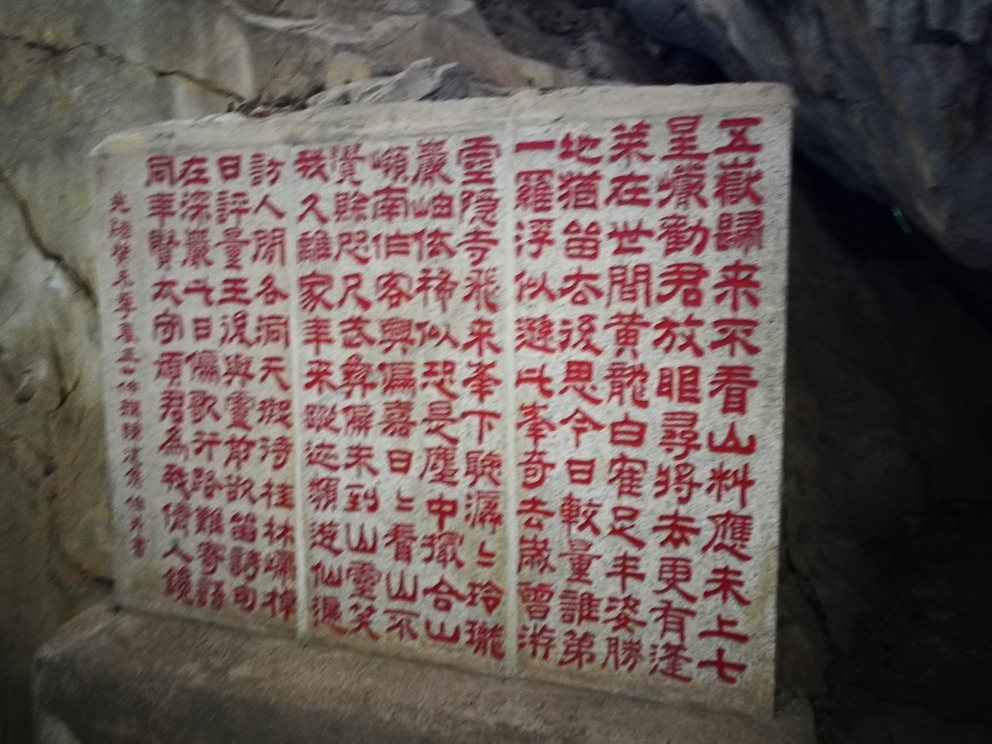 五嶽歸来不看山料應未上七
星巖勸君放眼尋將去更有蓬
莱在世間黄龍白隺足丰姿勝
地猶留去後思今日較量誰第
一羅浮似遜此峯奇去歲曾游
靈隐寺飛来峯下聴潺々玲瓏
巖岫依稀似恐是塵中撮合山
嶺南作客興偏嘉日々看山不
覺賒咫尺武彝偏未到山靈笑
我久離家年来蹤迹類遊仙遍
訪人間各洞天擬待桂林歸棹
日評量王後與盧前欲留詩句
在深巖此日偏歌行路難寄語
同年賢太守煩君為我倩人鐫
光緒肇元